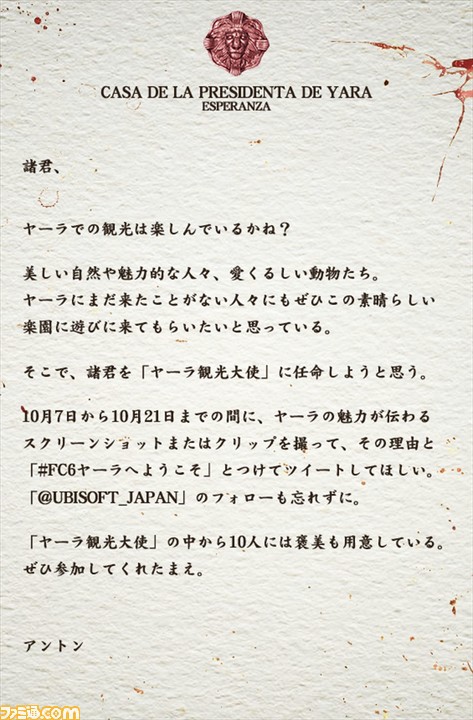 CASA DE LA PRESIDENTA DE YARA
ESPERANZA
諸君、
ヤーラでの観光は楽しんでいるかね？
美しい自然や魅力的な人々、愛くるしい動物たち。
ヤーラにまだ来たことがない人々にもぜひこの素晴らしい
楽園に遊びに来てもらいたいと思っている。
そこで、諸君を「ヤーラ観光大使」に任命しようと思う。
10月7日から10月21日までの間に、ヤーラの魅力が伝わる
スクリーンショットまたはクリップを撮って、その理由と
「#FC6ヤーラへようこそ」とつけてツイートしてほしい。
「@UBISOFT_JAPAN」のフォローも忘れずに。
「ヤーラ観光大使」の中から10人には褒美も用意している。
ぜひ参加してくれたまえ。
アントン
ファミ通.com